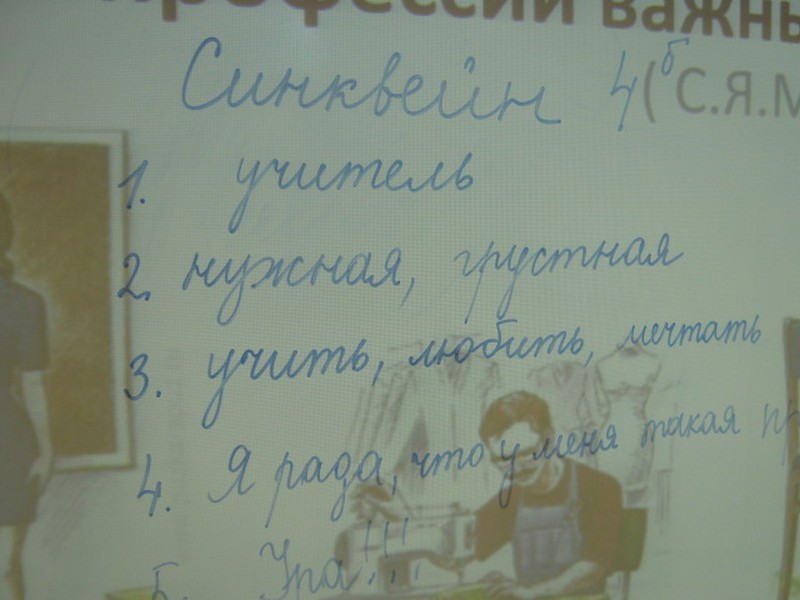 профессии важны
Синквейн 4б (С.Я.М
1. учитель
2. нужная, грустная
3. учить, любить, мечтать
4. Я рада, что у меня такая пр
5. Ура!!!